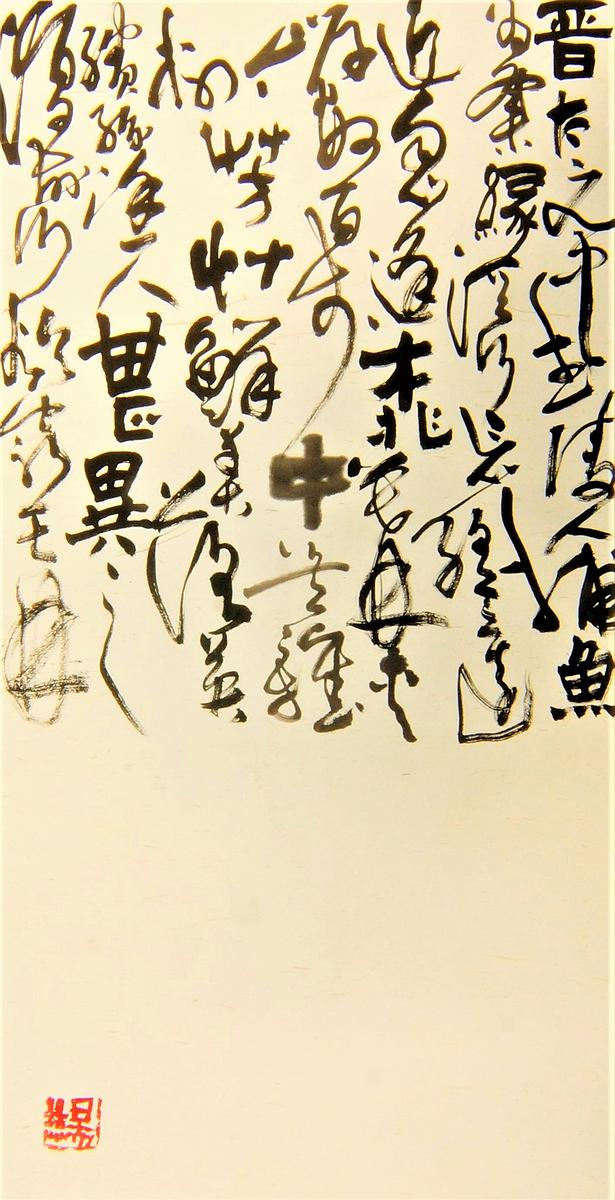 晉太元中武陵人捕魚
為業緣溪行忘路之遠
近忽逢桃花林夾
岸數百步中無雜
樹芳艸鮮美落英
繽紛漁人甚異之
復前行欲窮其林